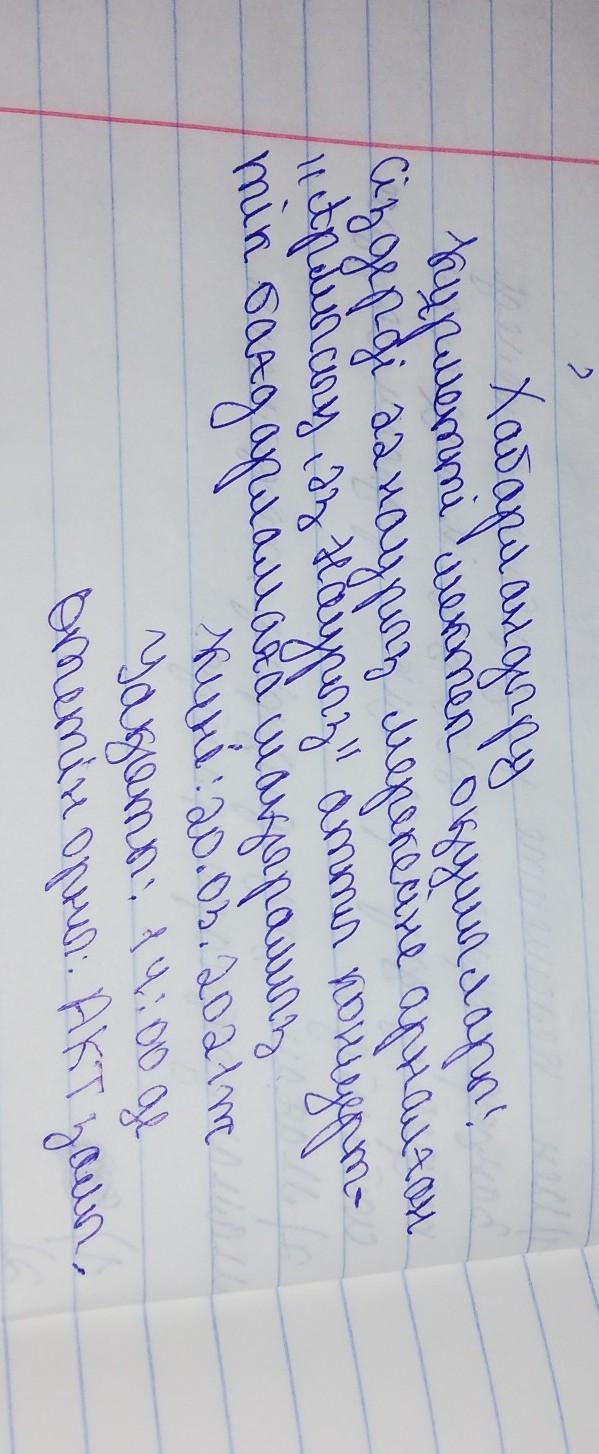 Хабарландыру
Құрметті мектеп оқушылары!
Сіздерді 22 наурыз мерекесіне арналған
"Армысың, әз Наурыз" атты концерт-
тік бағдарламаға шақырамыз
Күні: 20.03.2021ж
Уақыты: 14:00 де
Өтетін орны: АКТ залы.